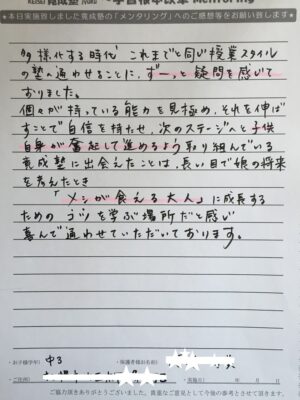 育成塾
Mentoring
★本日実施しました育成塾の「メンタリング」へのご感想等をお願い致します★
多様化する時代 これまでと同い授業スタイル
の塾へ通わせることに、ずーっと疑問を感いて
おりました。
個々が持っている能力を見極め、それを伸ば
すことで自信を持たせ、次のステージへと子供
自身が奮起して進めるよう取り組んでいる
育成塾に出会えたことは、長い目で娘の将来
を考えたとき
「メシが食える大人」に成長する
ための コツを学ぶ場所だと感い
喜んで通わせていただいております。
お子様学年) 中3 ・保護者様お名前)
ご住所) 実施日) 年 月 日
ご協力頂きありがとうございました。貴重なご意見として今後の参考とさせて頂きます。